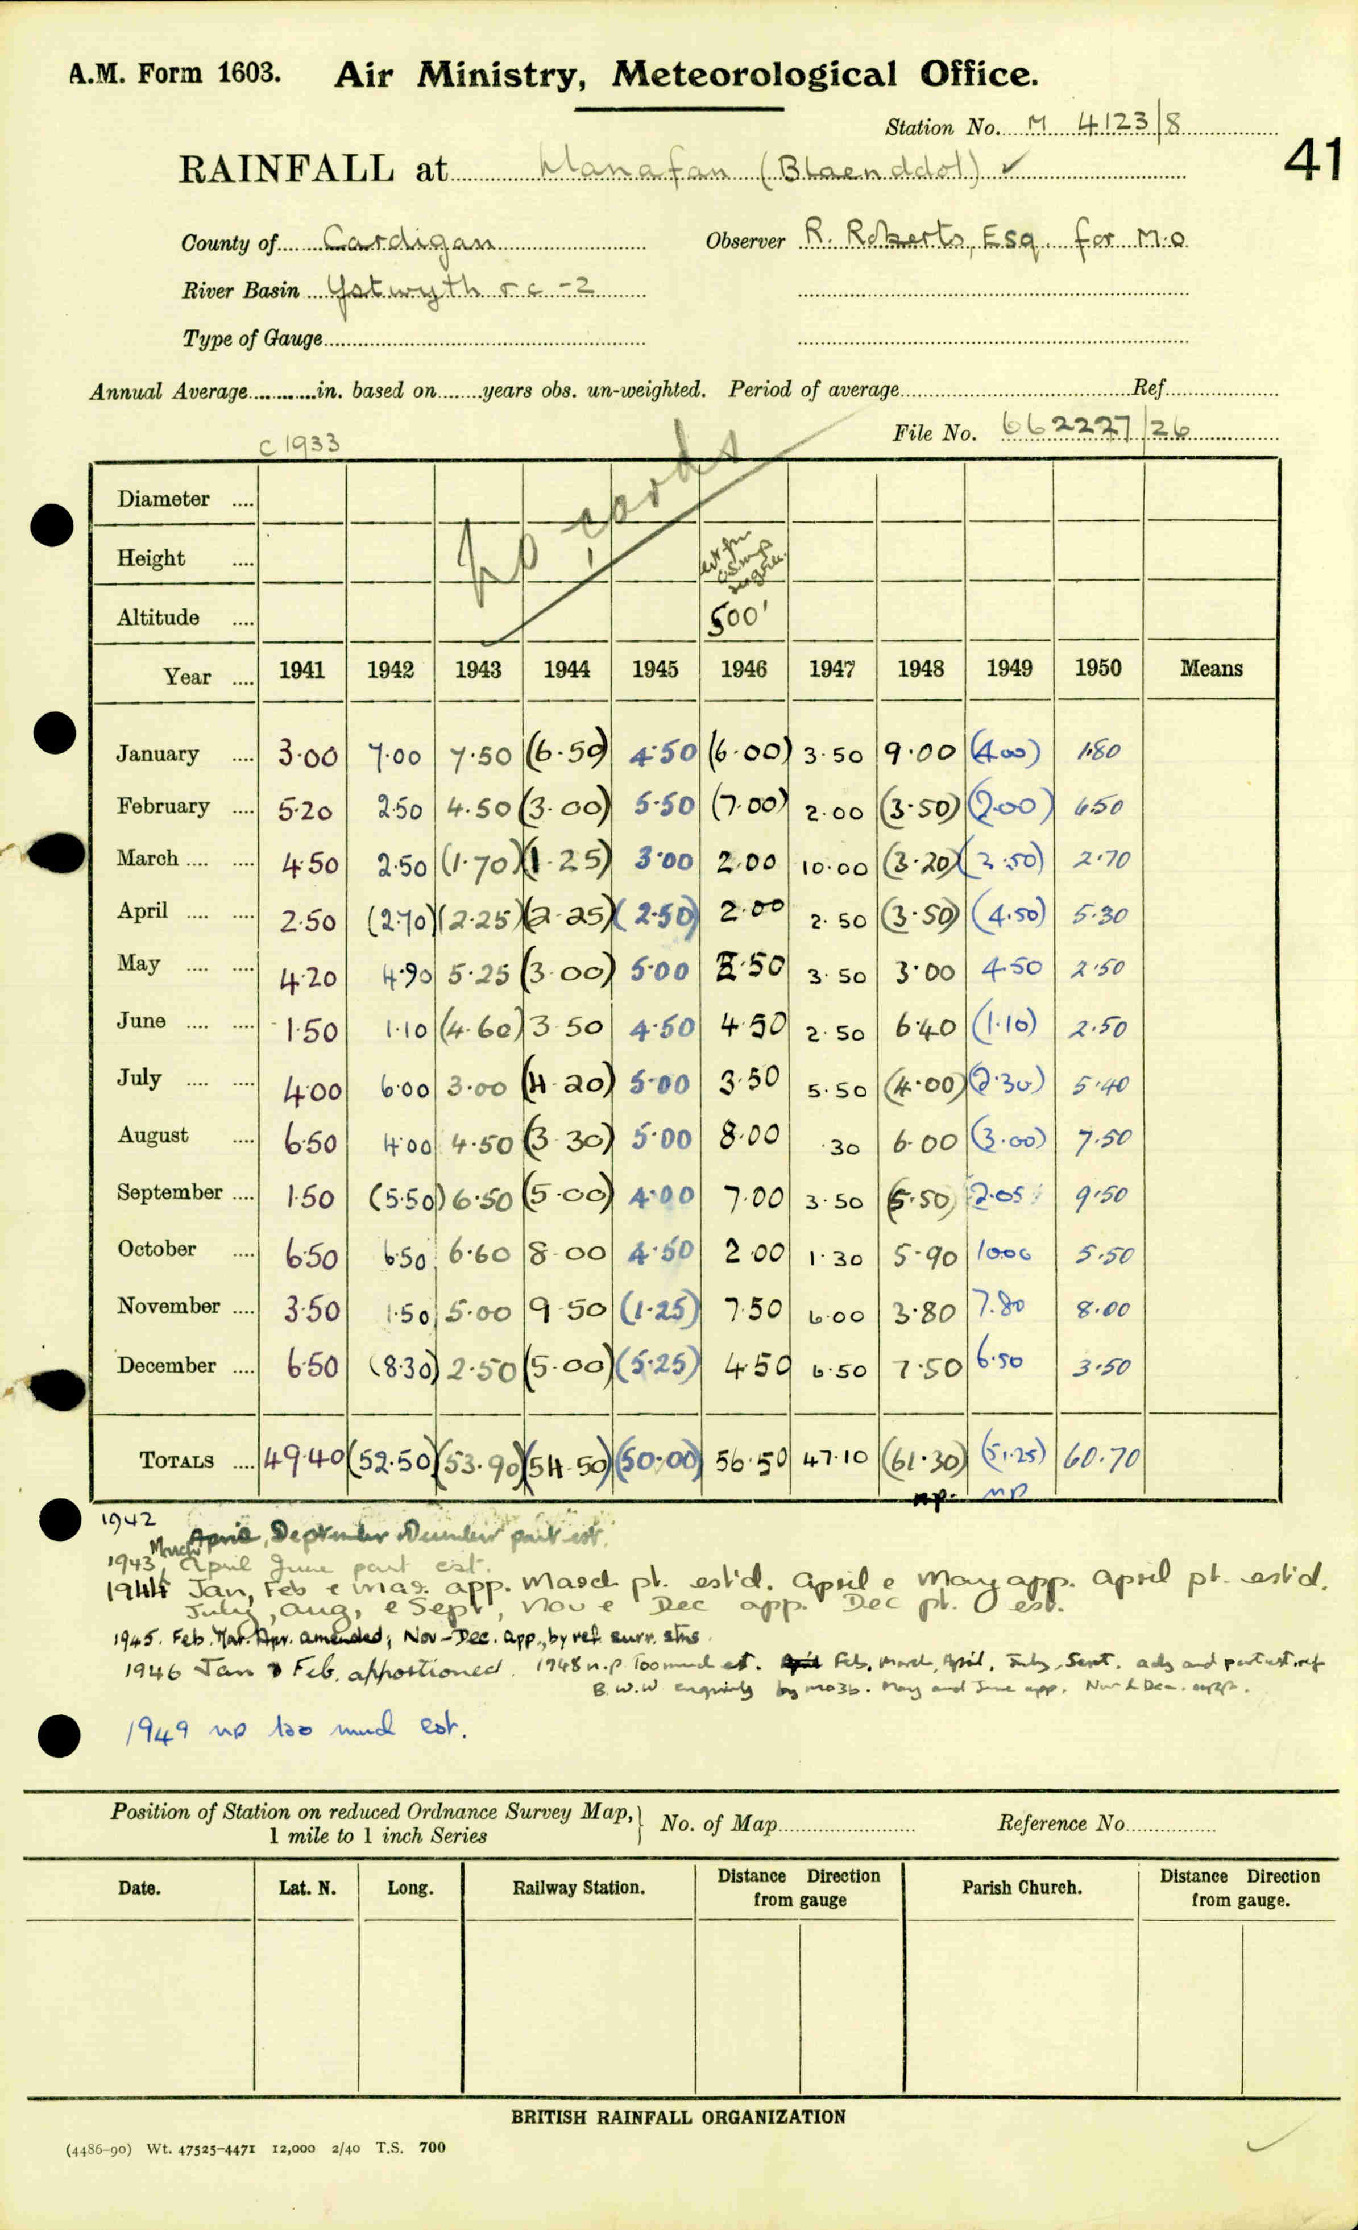 A.M. Form 1603. Air Ministry, Meteorological Office.
Station No. M 4123/8
RAINFALL at Llanafan (Blaenddol) ✓
41
County of Cardigan Observer R. Roberts, Esq. for M.O
River Basin Ystwyth rc -2
Type of Gauge
Annual Average in. based on years obs. un-weighted. Period of average Ref
File No. 662227/26
c 1933
No cards
Diameter
Height est fm
Altitude 500'
Year 1941 1942 1943 1944 1945 1946 1947 1948 1949 1950 Means
January 3·00 7·00 7·50 (6·50) 4·50 (6·00) 3·50 9·00 (4·00) 1·80
February 5·20 2·50 4·50 (3·00) 5·50 (7·00) 2·00 (3·50) (2·00) 6·50
March 4·50 2·50 (1·70) (1·25) 3·00 2·00 10·00 (3·20) (3·50) 2·70
April 2·50 (2·70) (2·25) (2·25) (2·50) 2·00 2·50 (3·50) (4·50) 5·30
May 4·20 4·90 5·25 (3·00) 5·00 2·50 3·50 3·00 4·50 2·50
June 1·50 1·10 (4·60) 3·50 4·50 4·50 2·50 6·40 (1·10) 2·50
July 4·00 6·00 3·00 (4·20) 5·00 3·50 5·50 (4·00) (2·30) 5·40
August 6·50 4·00 4·50 (3·30) 5·00 8·00 ·30 6·00 (3·00) 7·50
September 1·50 (5·50) 6·50 (5·00) 4·00 7·00 3·50 (5·50) 2·05 9·50
October 6·50 6·50 6·60 8·00 4·50 2·00 1·30 5·90 10·00 5·50
November 3·50 1·50 5·00 9·50 (1·25) 7·50 6·00 3·80 7·80 8·00
December 6·50 (8·30) 2·50 (5·00) (5·25) 4·50 6·50 7·50 6·50 3·50
TOTALS 49·40 (52·50) (53·90) (54·50) (50·00) 56·50 47·10 (61·30) (51·25) 60·70
np. np
1942 April, September December part est.
1943 March April June part est.
1944 Jan, Feb e Mar. app. March pt. est'd. April e May app. April pt. est'd.
July, Aug, e Sept, Nov e Dec app. Dec pt. est.
1945. Feb. Mar. Apr. amended; Nov-Dec. app., by ref. surr. stns.
1946 Jan & Feb. apportioned. 1948 n.p. Too much est. April Feb, March, April, July, Sept. adj and part est. ref
B.W.W enquiry by mo3b. May and June app. Nov & Dec. app.
1949 np too much est.
Position of Station on reduced Ordnance Survey Map, 1 mile to 1 inch Series No. of Map Reference No
Date. Lat. N. Long. Railway Station. Distance from gauge Direction Parish Church. Distance from gauge. Direction
BRITISH RAINFALL ORGANIZATION
(4486-90) Wt. 47525-4471 12,000 2/40 T.S. 700